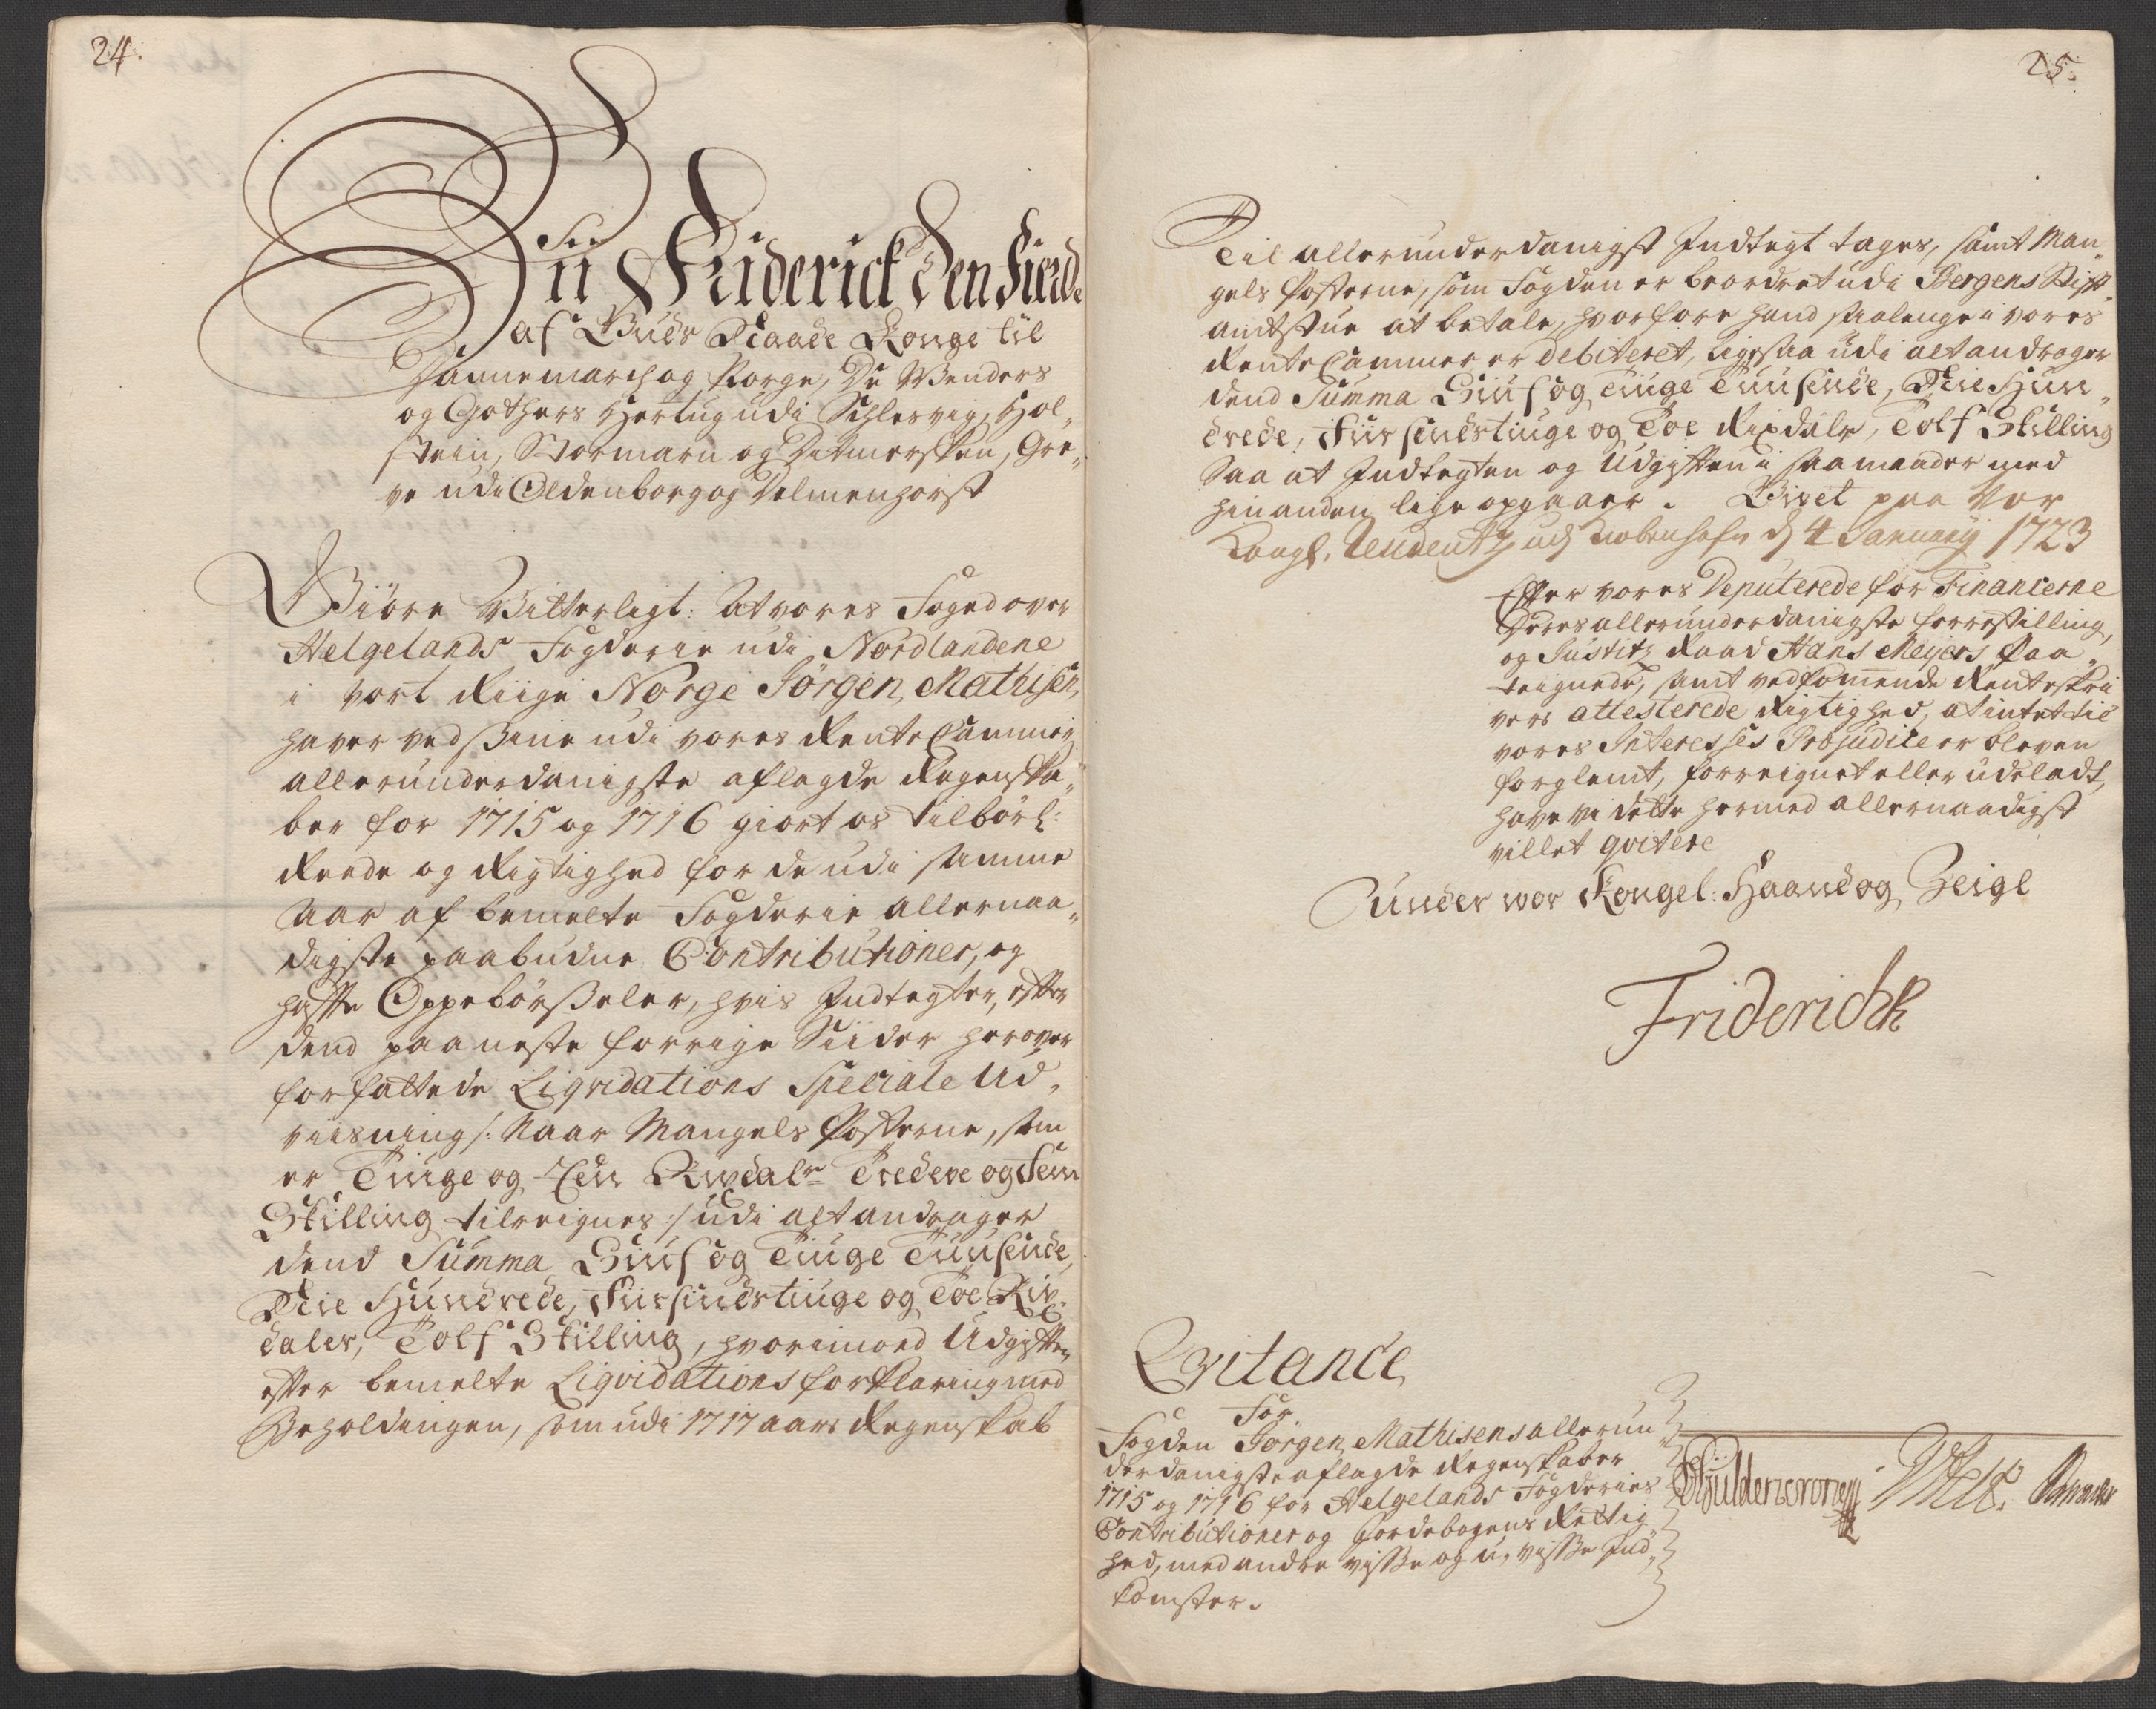 24.
Vii Friderick den Fierde
af Guds Naade Konge til
Dannemarch og Norge, De Wenders
og Gothers Hertug udi Schlesvig, Hol„
stein, Stormarn og Ditmersken, Gre„
ve udi Oldenborg og Delmenhorst
Giöre Vitterligt: At vores Foged over
Helgelands Fogderie udi Nordlandene
i vort Riige Norge Jörgen Mathisen,
haver ved sine udi vores Rente Cammer
allerunderdanigste aflagde Regenska„
ber for 1715 og 1716 giort os tilbörl:
Reede og Rigtighed for de udi samme
Aar af bemelte Fogderie allernaa„
digste paabudne Contributioner, og
hafte Oppebörseler, hvis Indtegter, efter
dend paa neste forrige Siider herover
forfattede Liqvidations Speciale Ud„
viisning /: Naar Mangels Posterne, som
er Tiuge og Een Rixdalr Tredeve og Fem
Skilling tilreignes :/ udi alt andrager
dend Summa Siuf og Tiuge Tuusinde,
Nie Hundrede, Fiirsindstiuge og Toe Rix„
daler, Tolf Skilling, hvorimoed Udgiften
efter bemelte Liqvidations forklaring med
Beholdingen, som udi 1717 aars Regenskab
25.
Til allerunderdanigst Indtegt tages, samt Man„
gels Posterne, som Fogden er beordret udi Bergens Stift„
amtstue at betale, hvorfore hand saalenge i vores
Rente Cammer er Debiteret, ligesaa udi alt andrager
dend Summa Siuf og Tiuge Tuusinde, Nie Hun„
drede, Fiirsindstiuge og Toe Rixdaler, Tolf Skilling
Saa at Indtegten og Udgiften i saa maader med
hinanden lige opgaaer. Givet paa Vor
Kongl. Residentz udj Kiøbenhafn d. 4 Januarij 1723
Efter vores Deputerede for Financerne
Deres allerunderdanigste forrestilling,
og Justitz Raad Hans Meyers Paa„
teignede, samt vedkommende Renteskri
vers attesterede Rigtighed, at intet til
vores Interesses Præjudice er bleven
forglemt, forreignet eller udeladt,
have vi dette hermed allernaadigst
villet qvitere
Under vor Kongel: Haand og Zeigl
Friderich R
Qvitance
For
Fogden Jörgen Mathisens allerun
derdanigste aflagde Regenskaber
1715 og 1716 for Helgelands Fogderies
Contributioner og Jordebogens Rettig
hed, med andre visse og u„visse Ind„
komster.
CGuldencrone